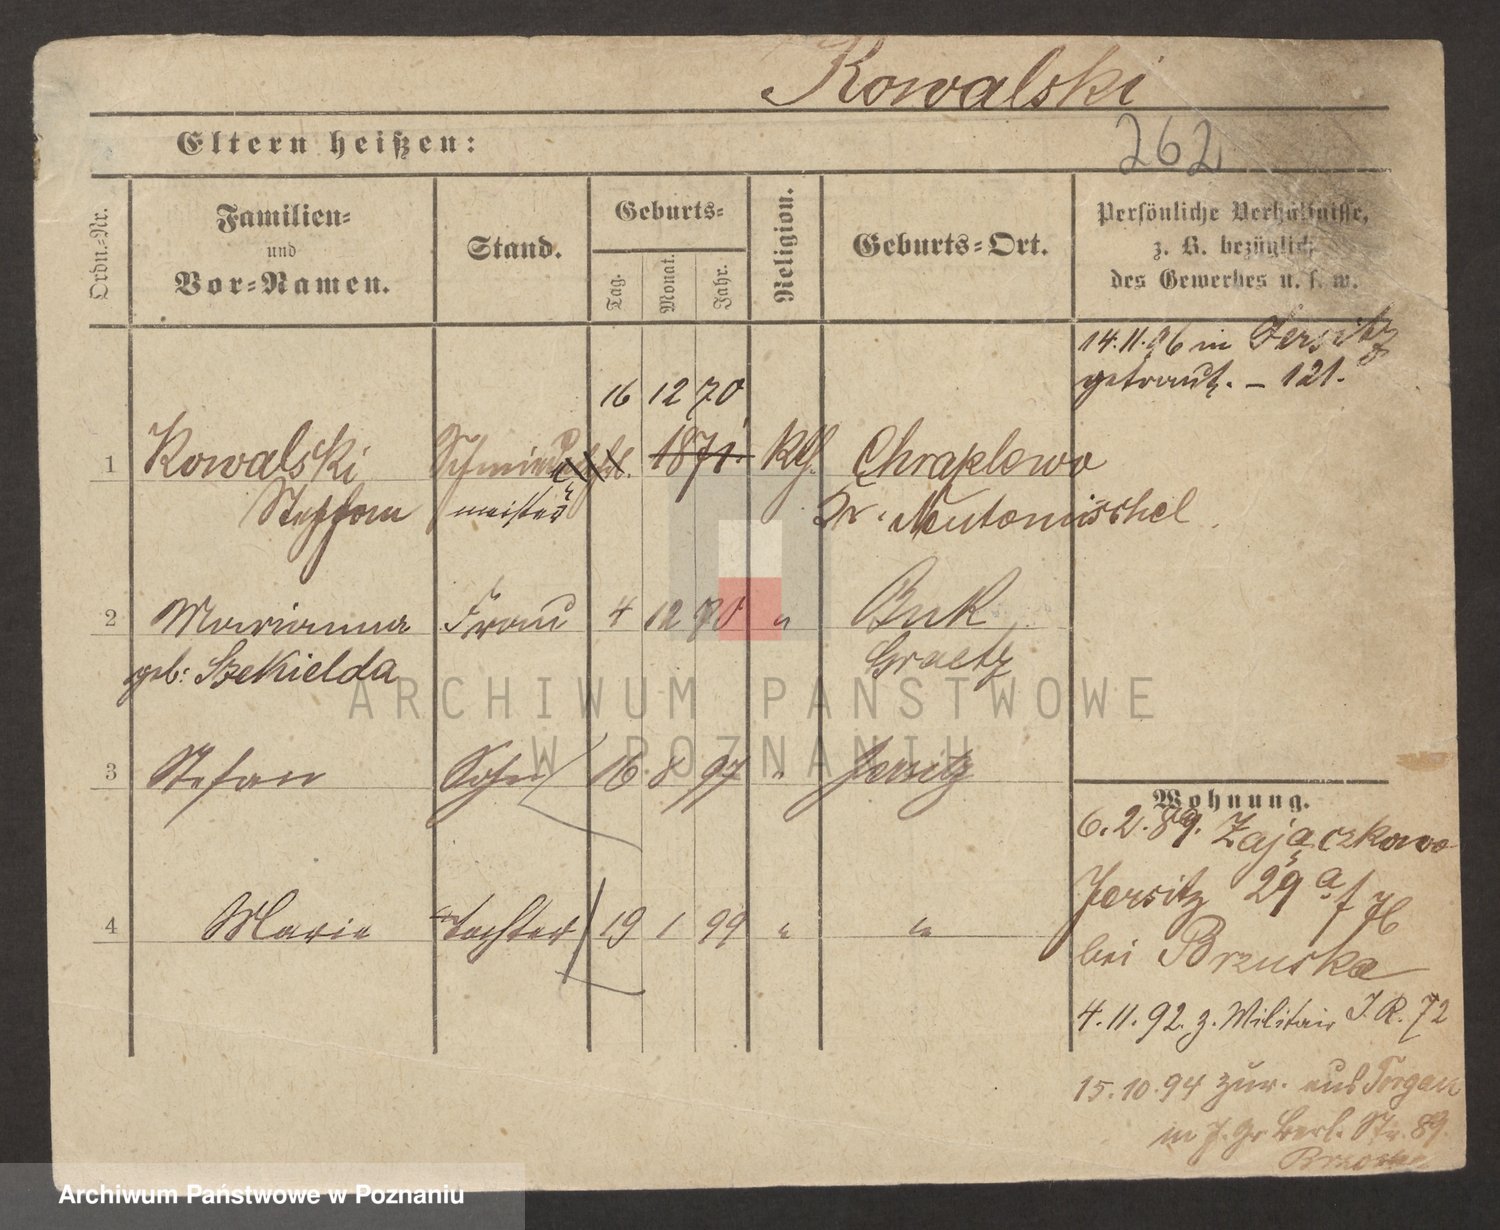 Kowalski
262
Eltern heißen:
Ordn.-Nr.
Familien-
und
Vor-Namen.
Stand.
Geburts-
Tag.
Monat.
Jahr.
Religion.
Geburts-Ort.
Persönliche Verhältnisse,
z. B. bezüglich
des Gewerbes u. s. w.
14.11.96 in Jersitz
getraut. – 121.
16 12 70
1 Kowalski Schmied 1871. Kth. Chraplewo
Stephan meister Kr. Neutomischel
2 Marianna Frau 4 12 70 " Buk
geb: Szekielda Graetz
3 Stefan Sohn 16 8 97 " Jersitz
4 Marie Tochter 19 1 99 " "
Wohnung.
6.2.89. Zajączkowo
Jersitz 29 a
bei Brzuska
4.11.92. z. Militair J.R. 72
15.10.94 zur. aus Torgau
in J. Gr Berl. Str. 89.
ARCHIWUM PAŃSTWOWE
W POZNANIU
Archiwum Państwowe w Poznaniu